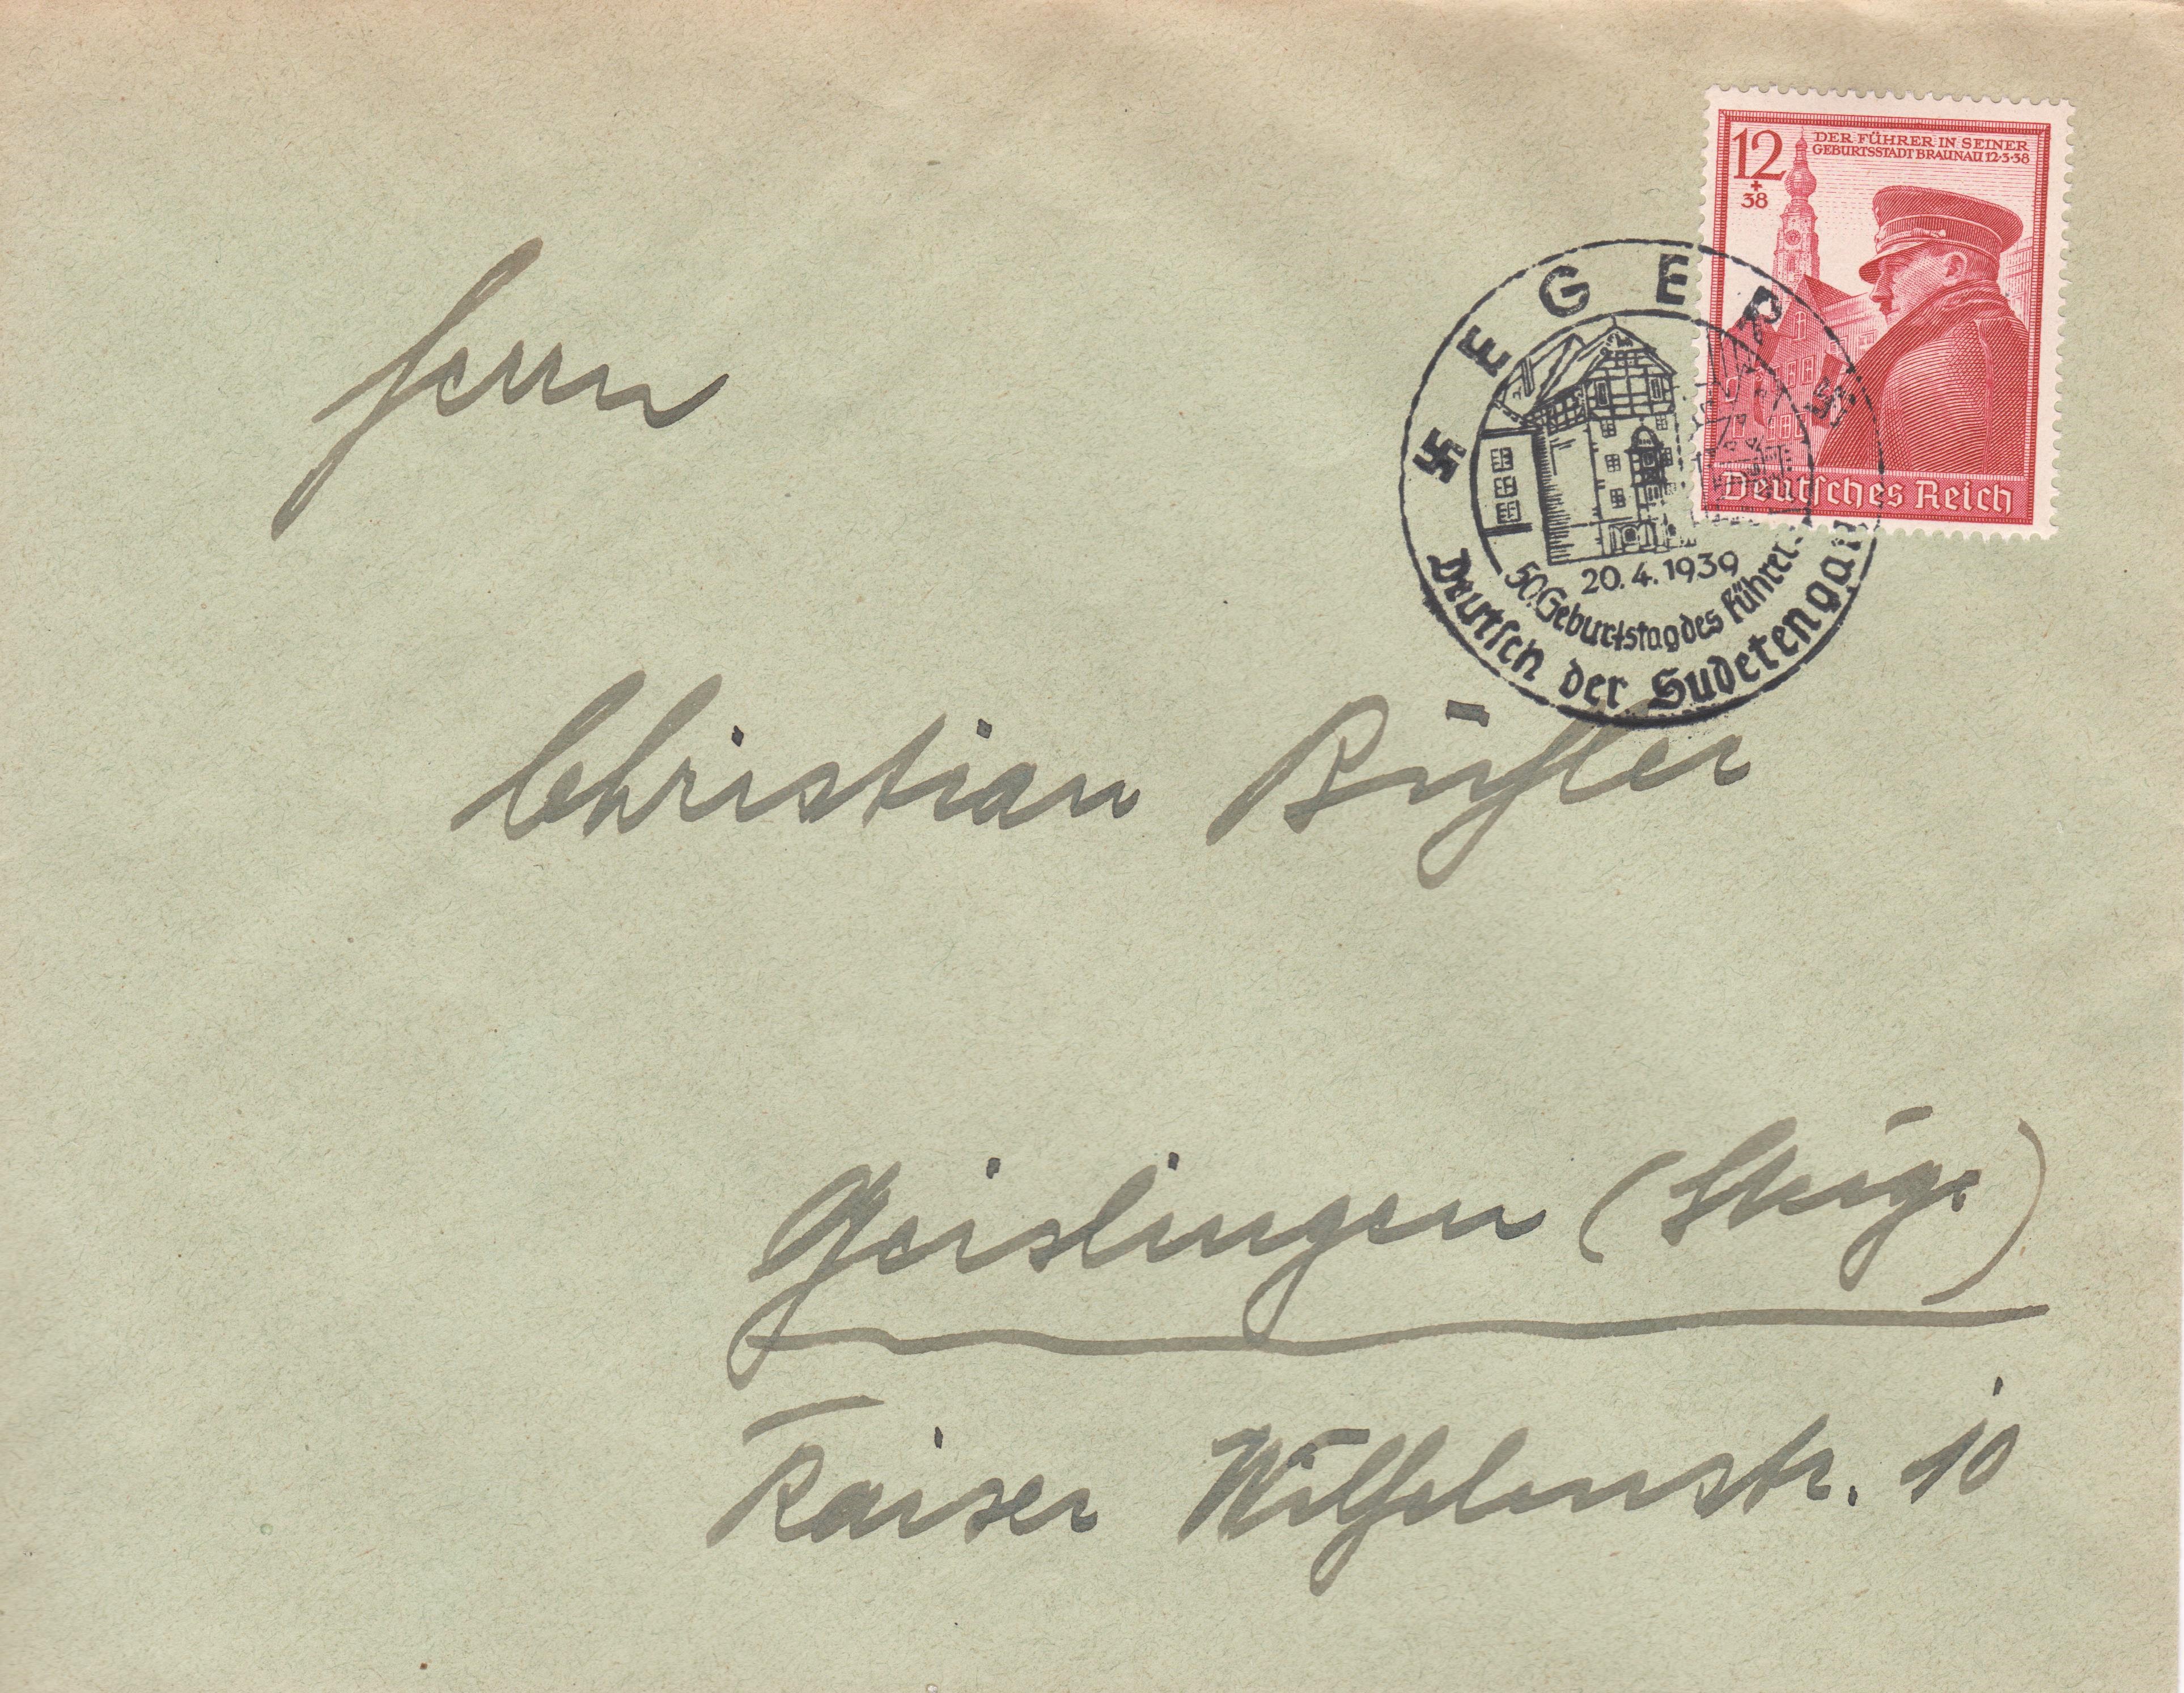 12
+
38
DER FÜHRER IN SEINER
GEBURTSSTADT BRAUNAU 12·3·38
Deutsches Reich
EGER
20.4.1939
50. Geburtstag des Führers
Deutsch der Sudetengau
Herrn
Christian Bühler
Geislingen (Steige)
Kaiser Wilhelmstr. 10